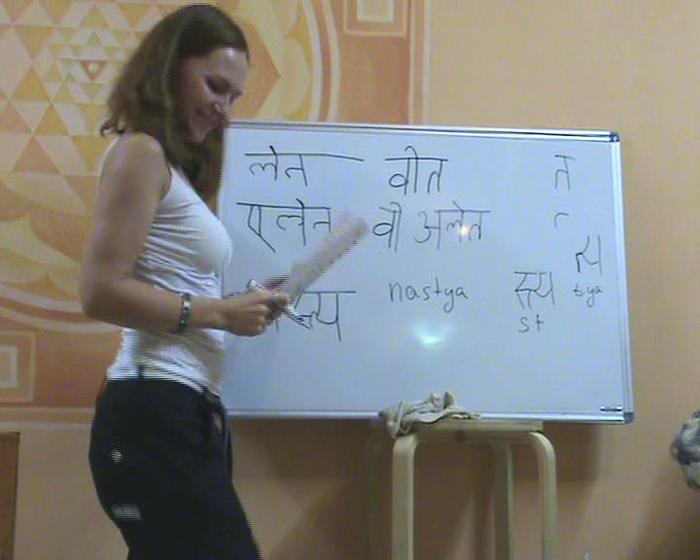 लेन वोत त
एलेन वो अलेत
त्य
nastya स्त्य tya
स्त्य st